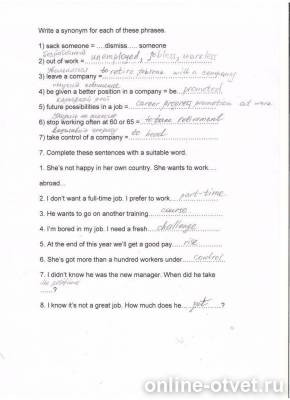 Write a synonym for each of these phrases.
1) sack someone = ..... dismiss..... someone
2) out of work = unemployed, jobless, workless
3) leave a company = to retire, jobless with a company
4) be given a better position in a company = be... promoted
карьерный рост
5) future possibilities in a job = career progress, promotion at work
6) stop working often at 60 or 65 = to take retirement
7) take control of a company = to head
7. Complete these sentences with a suitable word.
1. She's not happy in her own country. She wants to work....
abroad...
2. I don't want a full-time job. I prefer to work... part-time
3. He wants to go on another training... course
4. I'm bored in my job. I need a fresh... challenge
5. At the end of this year we'll get a good pay.... rise
6. She's got more than a hundred workers under... control
7. I didn't know he was the new manager. When did he take
......?
8. I know it's not a great job. How much does he... get ...?
online-otvet.ru